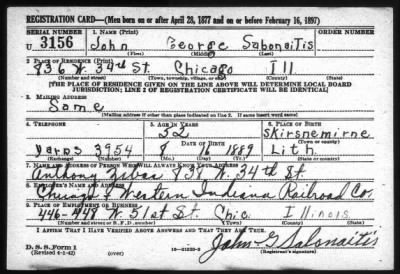 REGISTRATION CARD—(Men born on or after April 28, 1877 and on or before February 16, 1897)
SERIAL NUMBER 1. NAME (Print) ORDER NUMBER
U 3156 John George Sabonaitis
(First) (Middle) (Last)
2. PLACE OF RESIDENCE (Print)
836 W. 34th St. Chicago Ill
(Number and street) (Town, township, village, or city) (County) (State)
[THE PLACE OF RESIDENCE GIVEN ON THE LINE ABOVE WILL DETERMINE LOCAL BOARD
JURISDICTION; LINE 2 OF REGISTRATION CERTIFICATE WILL BE IDENTICAL]
3. MAILING ADDRESS
Same
[Mailing address if other than place indicated on line 2. If same insert word same]
4. TELEPHONE 5. AGE IN YEARS 6. PLACE OF BIRTH
52 Skirsnemirne
DATE OF BIRTH (Town or county)
Yards 3954 8 16 1889 Lith.
(Exchange) (Number) (Mo.) (Day) (Yr.) (State or country)
7. NAME AND ADDRESS OF PERSON WHO WILL ALWAYS KNOW YOUR ADDRESS
Anthony Zibas 838 W. 34th St.
8. EMPLOYER'S NAME AND ADDRESS
Chicago & Western Indiana Railroad Co.
9. PLACE OF EMPLOYMENT OR BUSINESS
446-448 W. 51st St. Chic. Illinois
(Number and street or R. F. D. number) (Town) (County) (State)
I AFFIRM THAT I HAVE VERIFIED ABOVE ANSWERS AND THAT THEY ARE TRUE.
D. S. S. Form 1
(Revised 4-1-42) (over) John G Sabonaitis